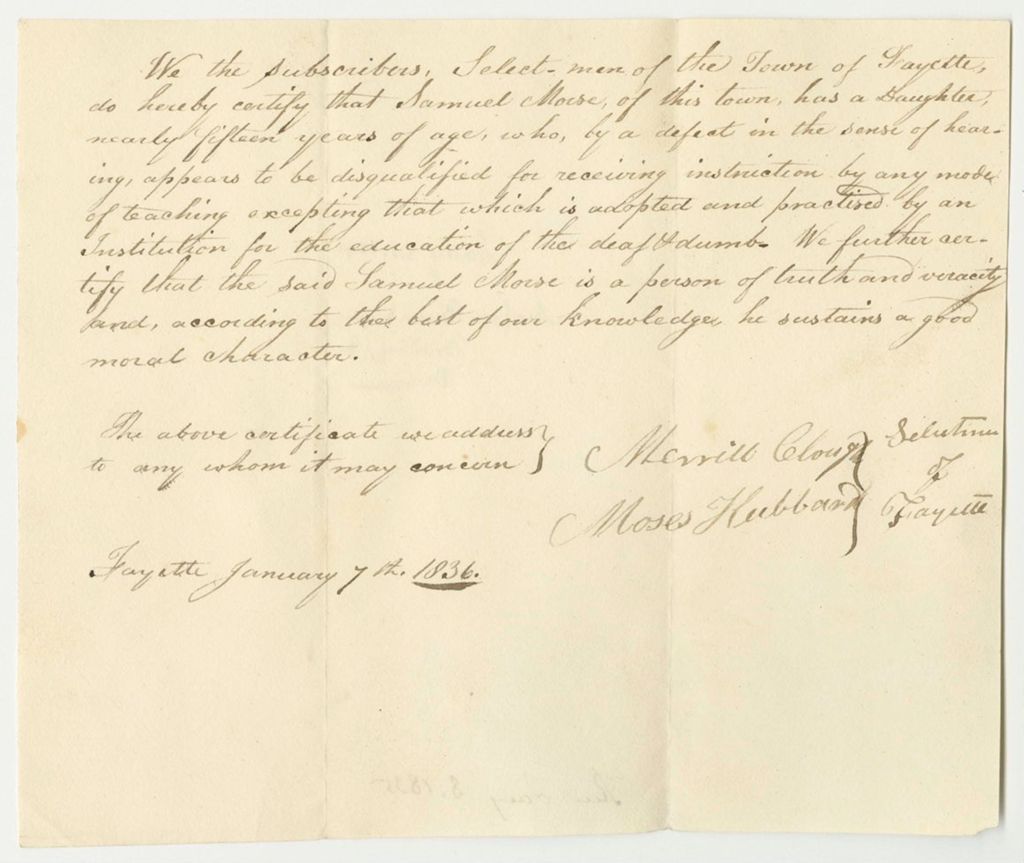 We the subscribers, Select-men of the Town of Fayette,
do hereby certify that Samuel Morse, of this town, has a Daughter,
nearly fifteen years of age, who, by a defect in the sense of hear-
ing, appears to be disqualified for receiving instruction by any mode
of teaching excepting that which is adopted and practised by an
Institution for the education of the deaf & dumb. We further cer-
tify that the said Samuel Morse is a person of truth and veracity
and, according to the best of our knowledge, he sustains a good
moral character.
The above certificate we address
to any whom it may concern
Merrill Clough
Moses Hubbard
Selectmen
of
Fayette
Fayette January 7th. 1836.